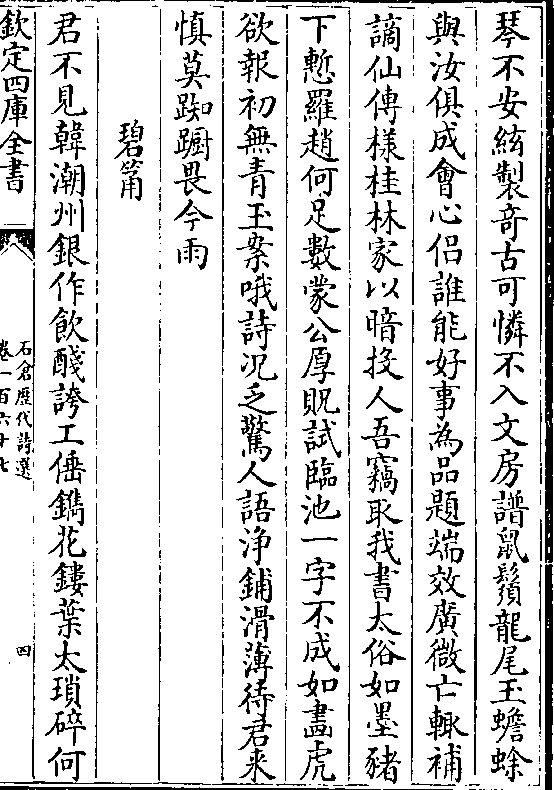 琴不安絃製竒古可憐不入文房譜鼠鬚龍尾玉蟾蜍
與汝俱成㑹心侣誰能好事為品題端效廣微亡輙補
謫仙傳様桂林家以暗投人吾竊取我書太俗如墨豬
下慙羅趙何足數蒙公厚貺試臨池一字不成如畫虎
欲報初無青玉案哦詩况乏驚人語浄鋪滑薄待君来
慎莫踟蹰畏今雨
碧筩
君不見韓潮州銀作飲醆誇工倕鐫花鏤葉太瑣碎何
欽定四庫全書
石倉歴代詩選
卷一百六十七
四